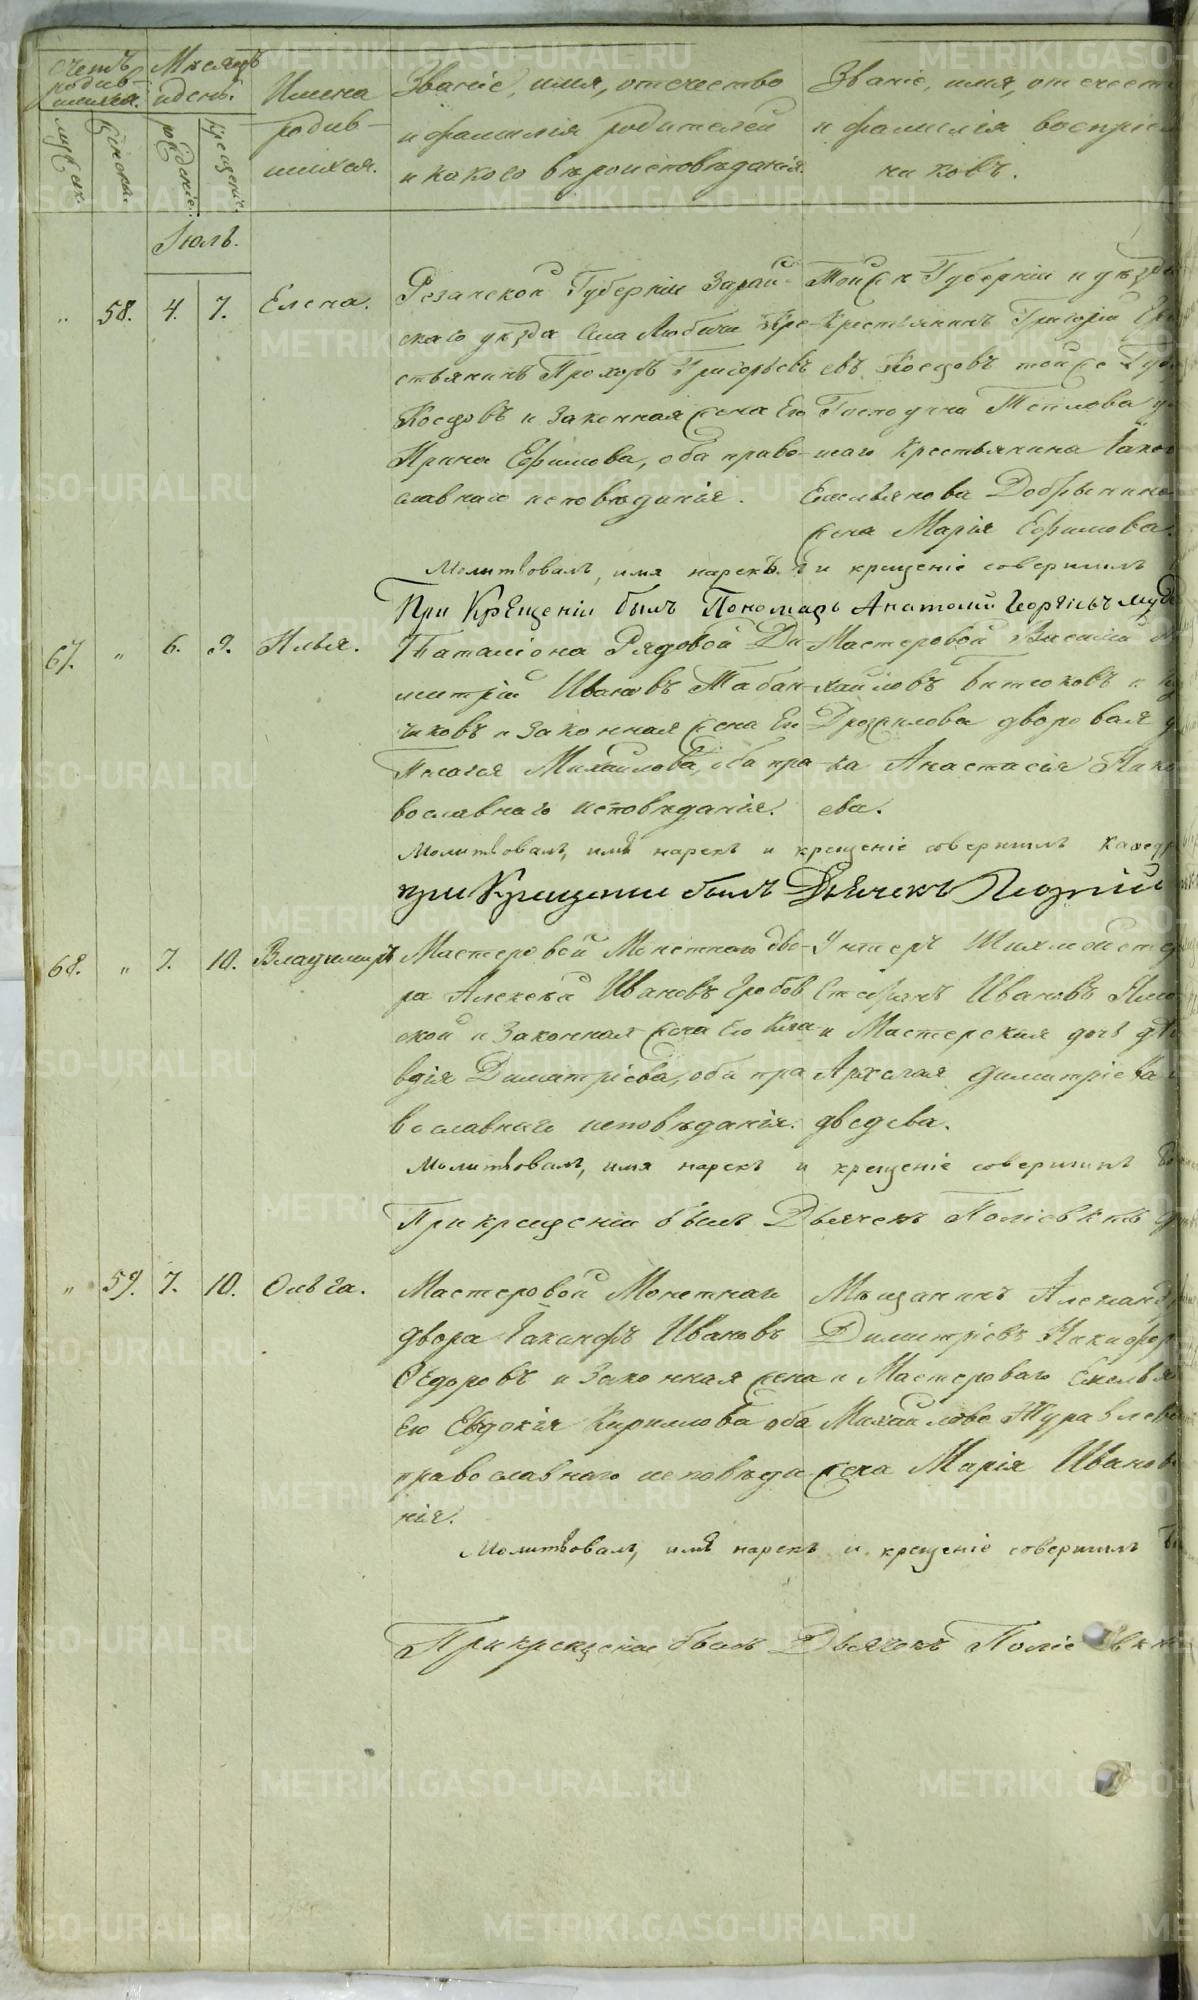 Счетъ родив-шихся.
Мѣсяцъ и день.
Имена родив-шихся.
Званіе, имя, отчество и фамилія родителей и какого вѣроисповѣданія.
Званіе, имя, отчест
и фамилія воспріем
никовъ.
мужск. женск. рожденіе. крещеніе.
Іюль.
" 58. 4. 7. Елена.
Резанской Губерніи Зарай-
скаго уѣзда села Любичи кре-
стьянинъ Прохоръ Григорьевъ
Косцовъ и законная жена Его
Ирина Ефимова, оба право-
славнаго исповѣданія.
Той же Губерніи и уѣзда
Крестьянинъ Григорій
евъ Косцовъ той же Гу
Господина Теплова
Крестьянина Іаков
Емельянова Добрынина
жена Марія Ефимова.
Молитвовалъ, имя нарекъ и крещеніе совершилъ
При Крещеніи былъ Пономарь Анатолій Георгіевъ
67. " 6. 9. Илья.
Баталіона Рядовой Ди
митрій Ивановъ Табан
чиковъ и законная жена Его
Пелагея Михайлова, оба пра
вославнаго исповѣданія.
Мастеровой Василій
хайловъ Битюковъ и
дворовая
ка Анастасія
ева.
Молитвовалъ, имя нарекъ и крещеніе совершилъ Каѳедр
при Крещеніи былъ Дьячекъ Георгій
68. " 7. 10. Владимиръ
Мастеровой Монетнаго дво-
ра Алексѣй Ивановъ Гробов
ской и законная жена Его Кла
вдія Димитріева, оба пра
вославнаго исповѣданія.
Унтеръ Шихмейстер
Стефанъ Ивановъ
и Мастерская дочь дѣ
Димитріева
дведева.
Молитвовалъ, имя нарекъ и крещеніе совершилъ
При крещеніи былъ Дьячекъ Поліевктъ
" 59. 7. 10. Ольга.
Мастеровой Монетнаго
двора Іакинфъ Ивановъ
Ѳедоровъ и законная жена
Его Евдокія Кирилова оба
православнаго исповѣда
нія.
Мѣщанинъ Александ
Димитріевъ Никифор
и Мастероваго Емелья
Михайлова Журавлева
жена Марія Иванов
Молитвовалъ, имя нарекъ и крещеніе совершилъ
При крещеніи былъ Дьячекъ Поліевктъ
METRIKI.GASO-URAL.RU